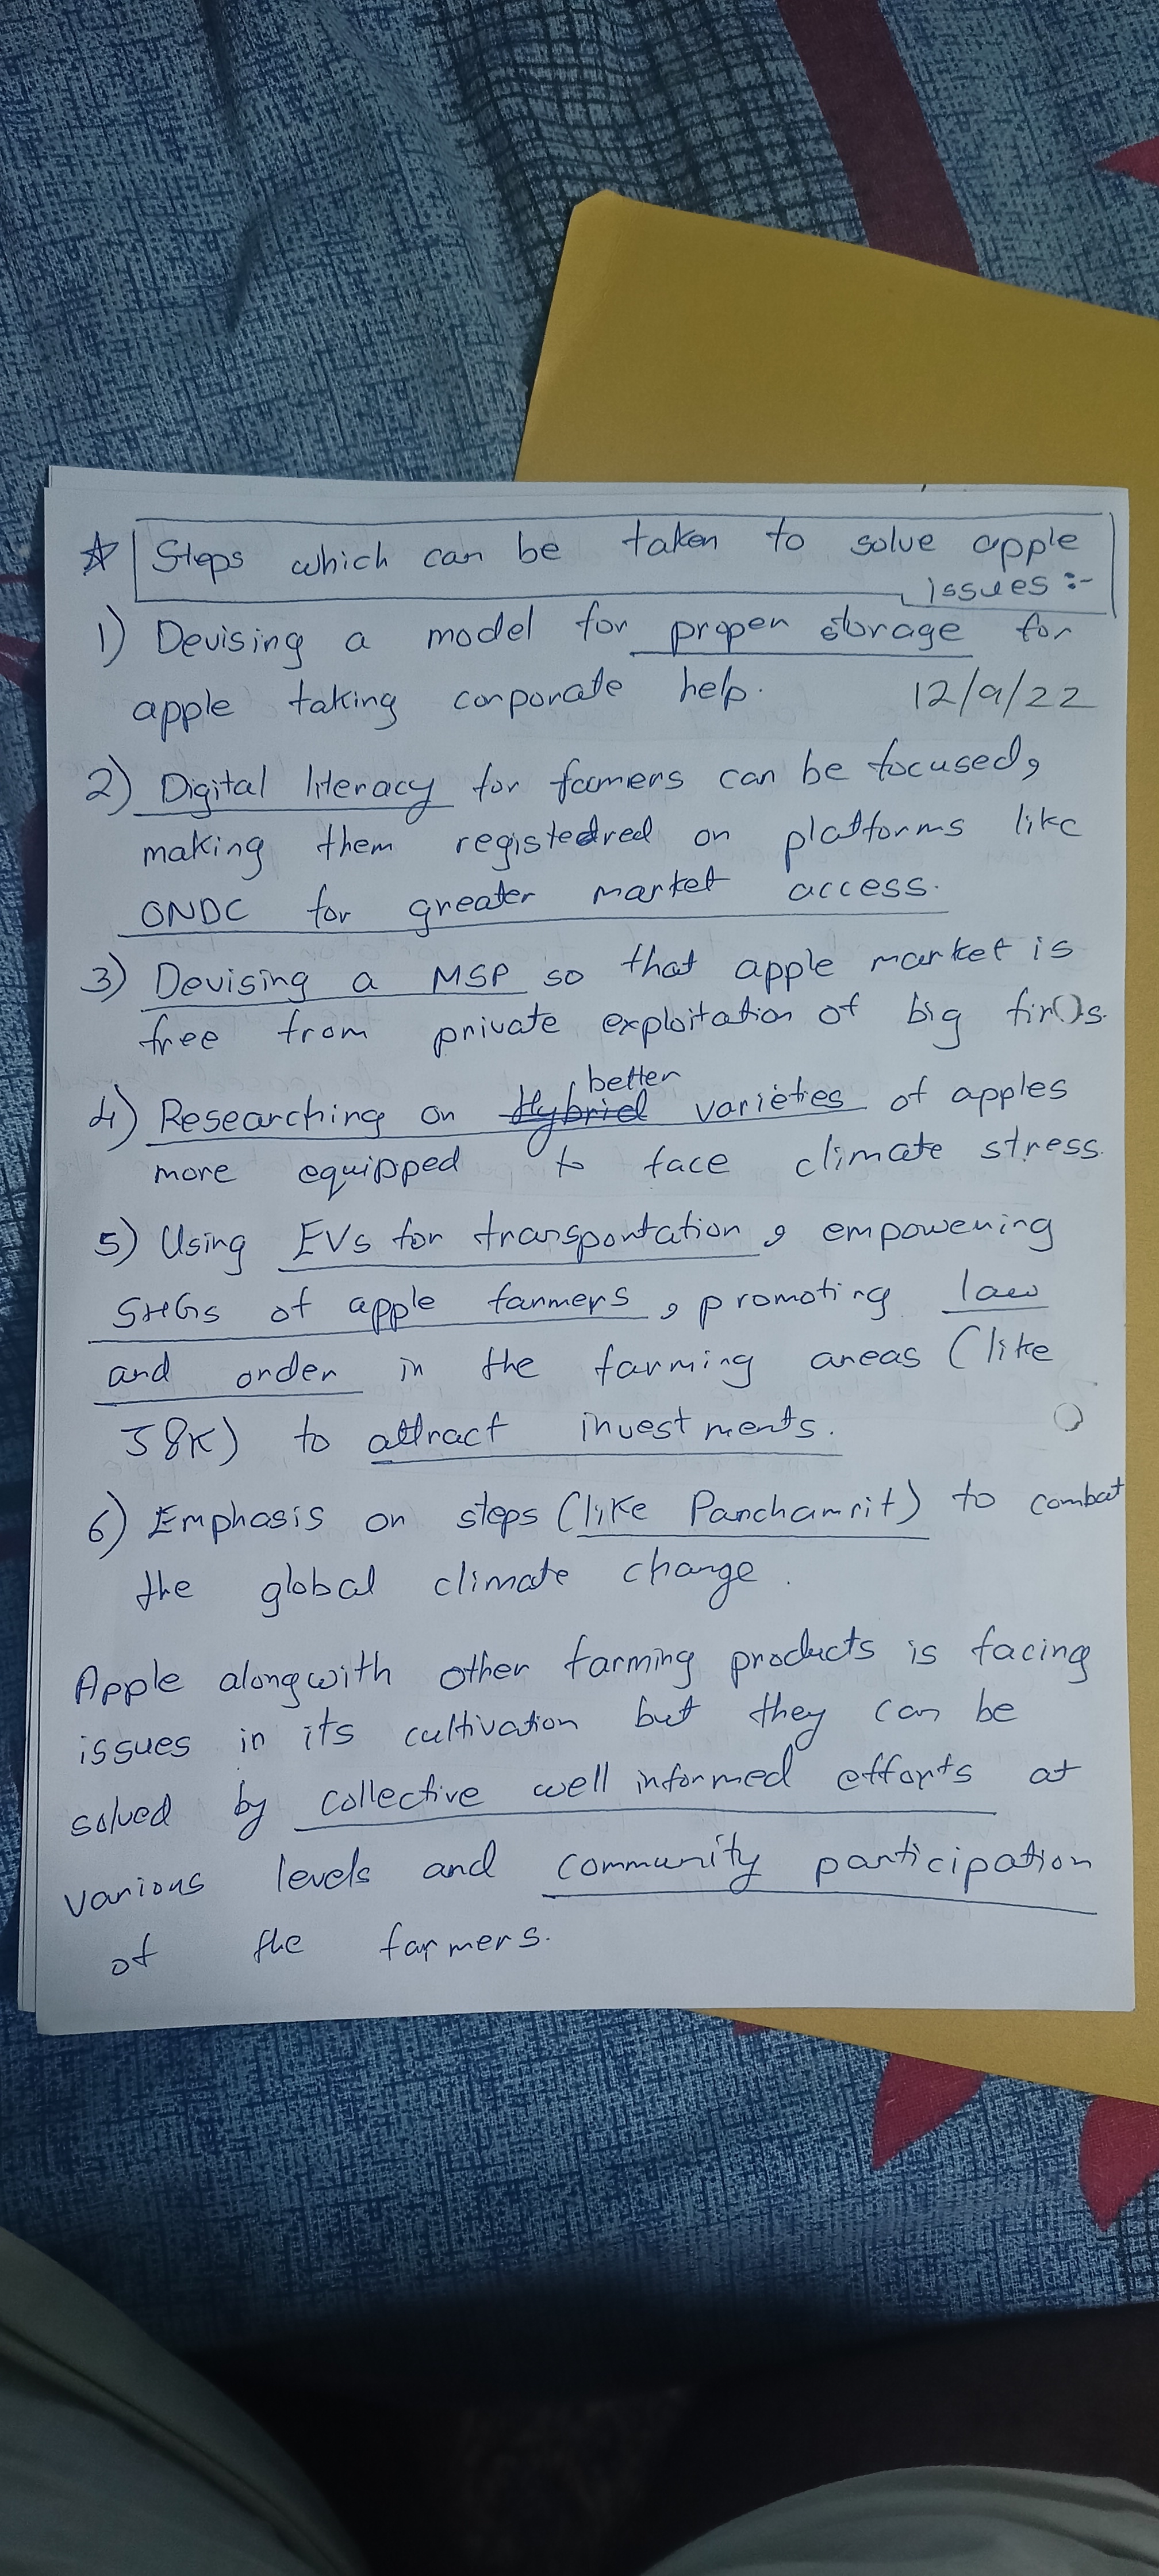 ☆ Steps which can be taken to solve apple
issues :-
1) Devising a model for proper storage for
apple taking corporate help.
12/9/22
2) Digital literacy for farmers can be focused,
making them registedred on platforms like
ONDC for greater market access.
3) Devising a MSP so that apple market is
free from private exploitation of big firms.
better
4) Researching on Hybrid varieties of apples
more equipped to face climate stress.
5) Using EVs for transportation, empowering
SHGs of apple farmers, promoting law
and order in the farming areas (like
J&K) to attract investments.
6) Emphasis on steps (like Panchamrit) to combat
the global climate change.
Apple alongwith other farming products is facing
issues in its cultivation but they can be
solved by collective well informed efforts at
various levels and community participation
of the farmers.